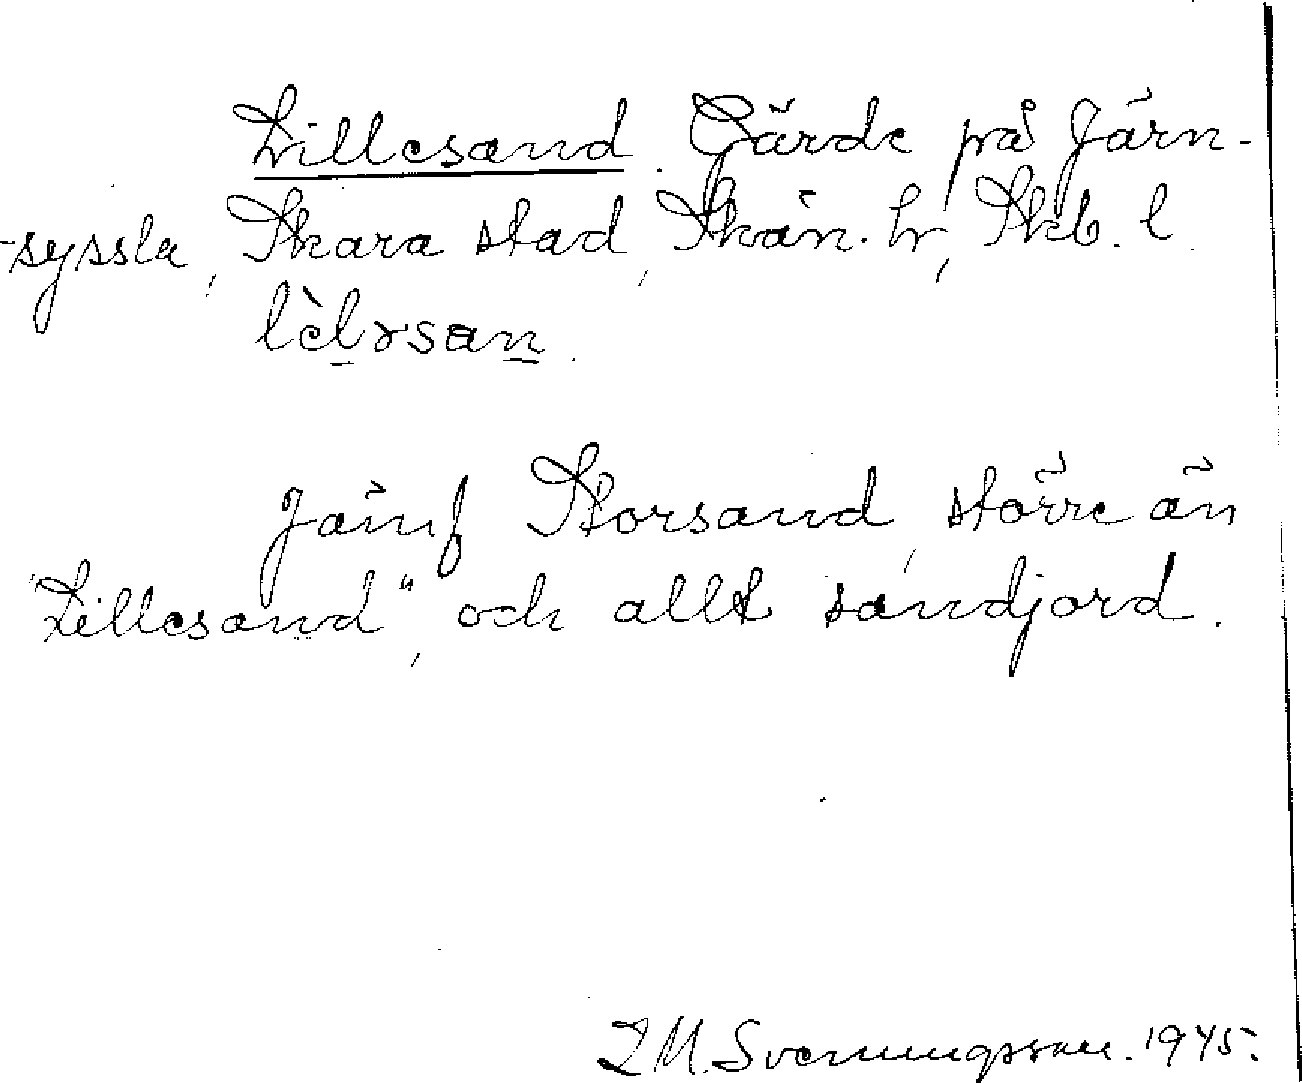 Lillesand. Gärde på Järn-
syssla, Skara stad, Skån. hr, Skb. l.
lèlɤsan.
Jämf Storsand, större än
"Lillesand", och allt sandjord.
M. Svenningsson. 1945.